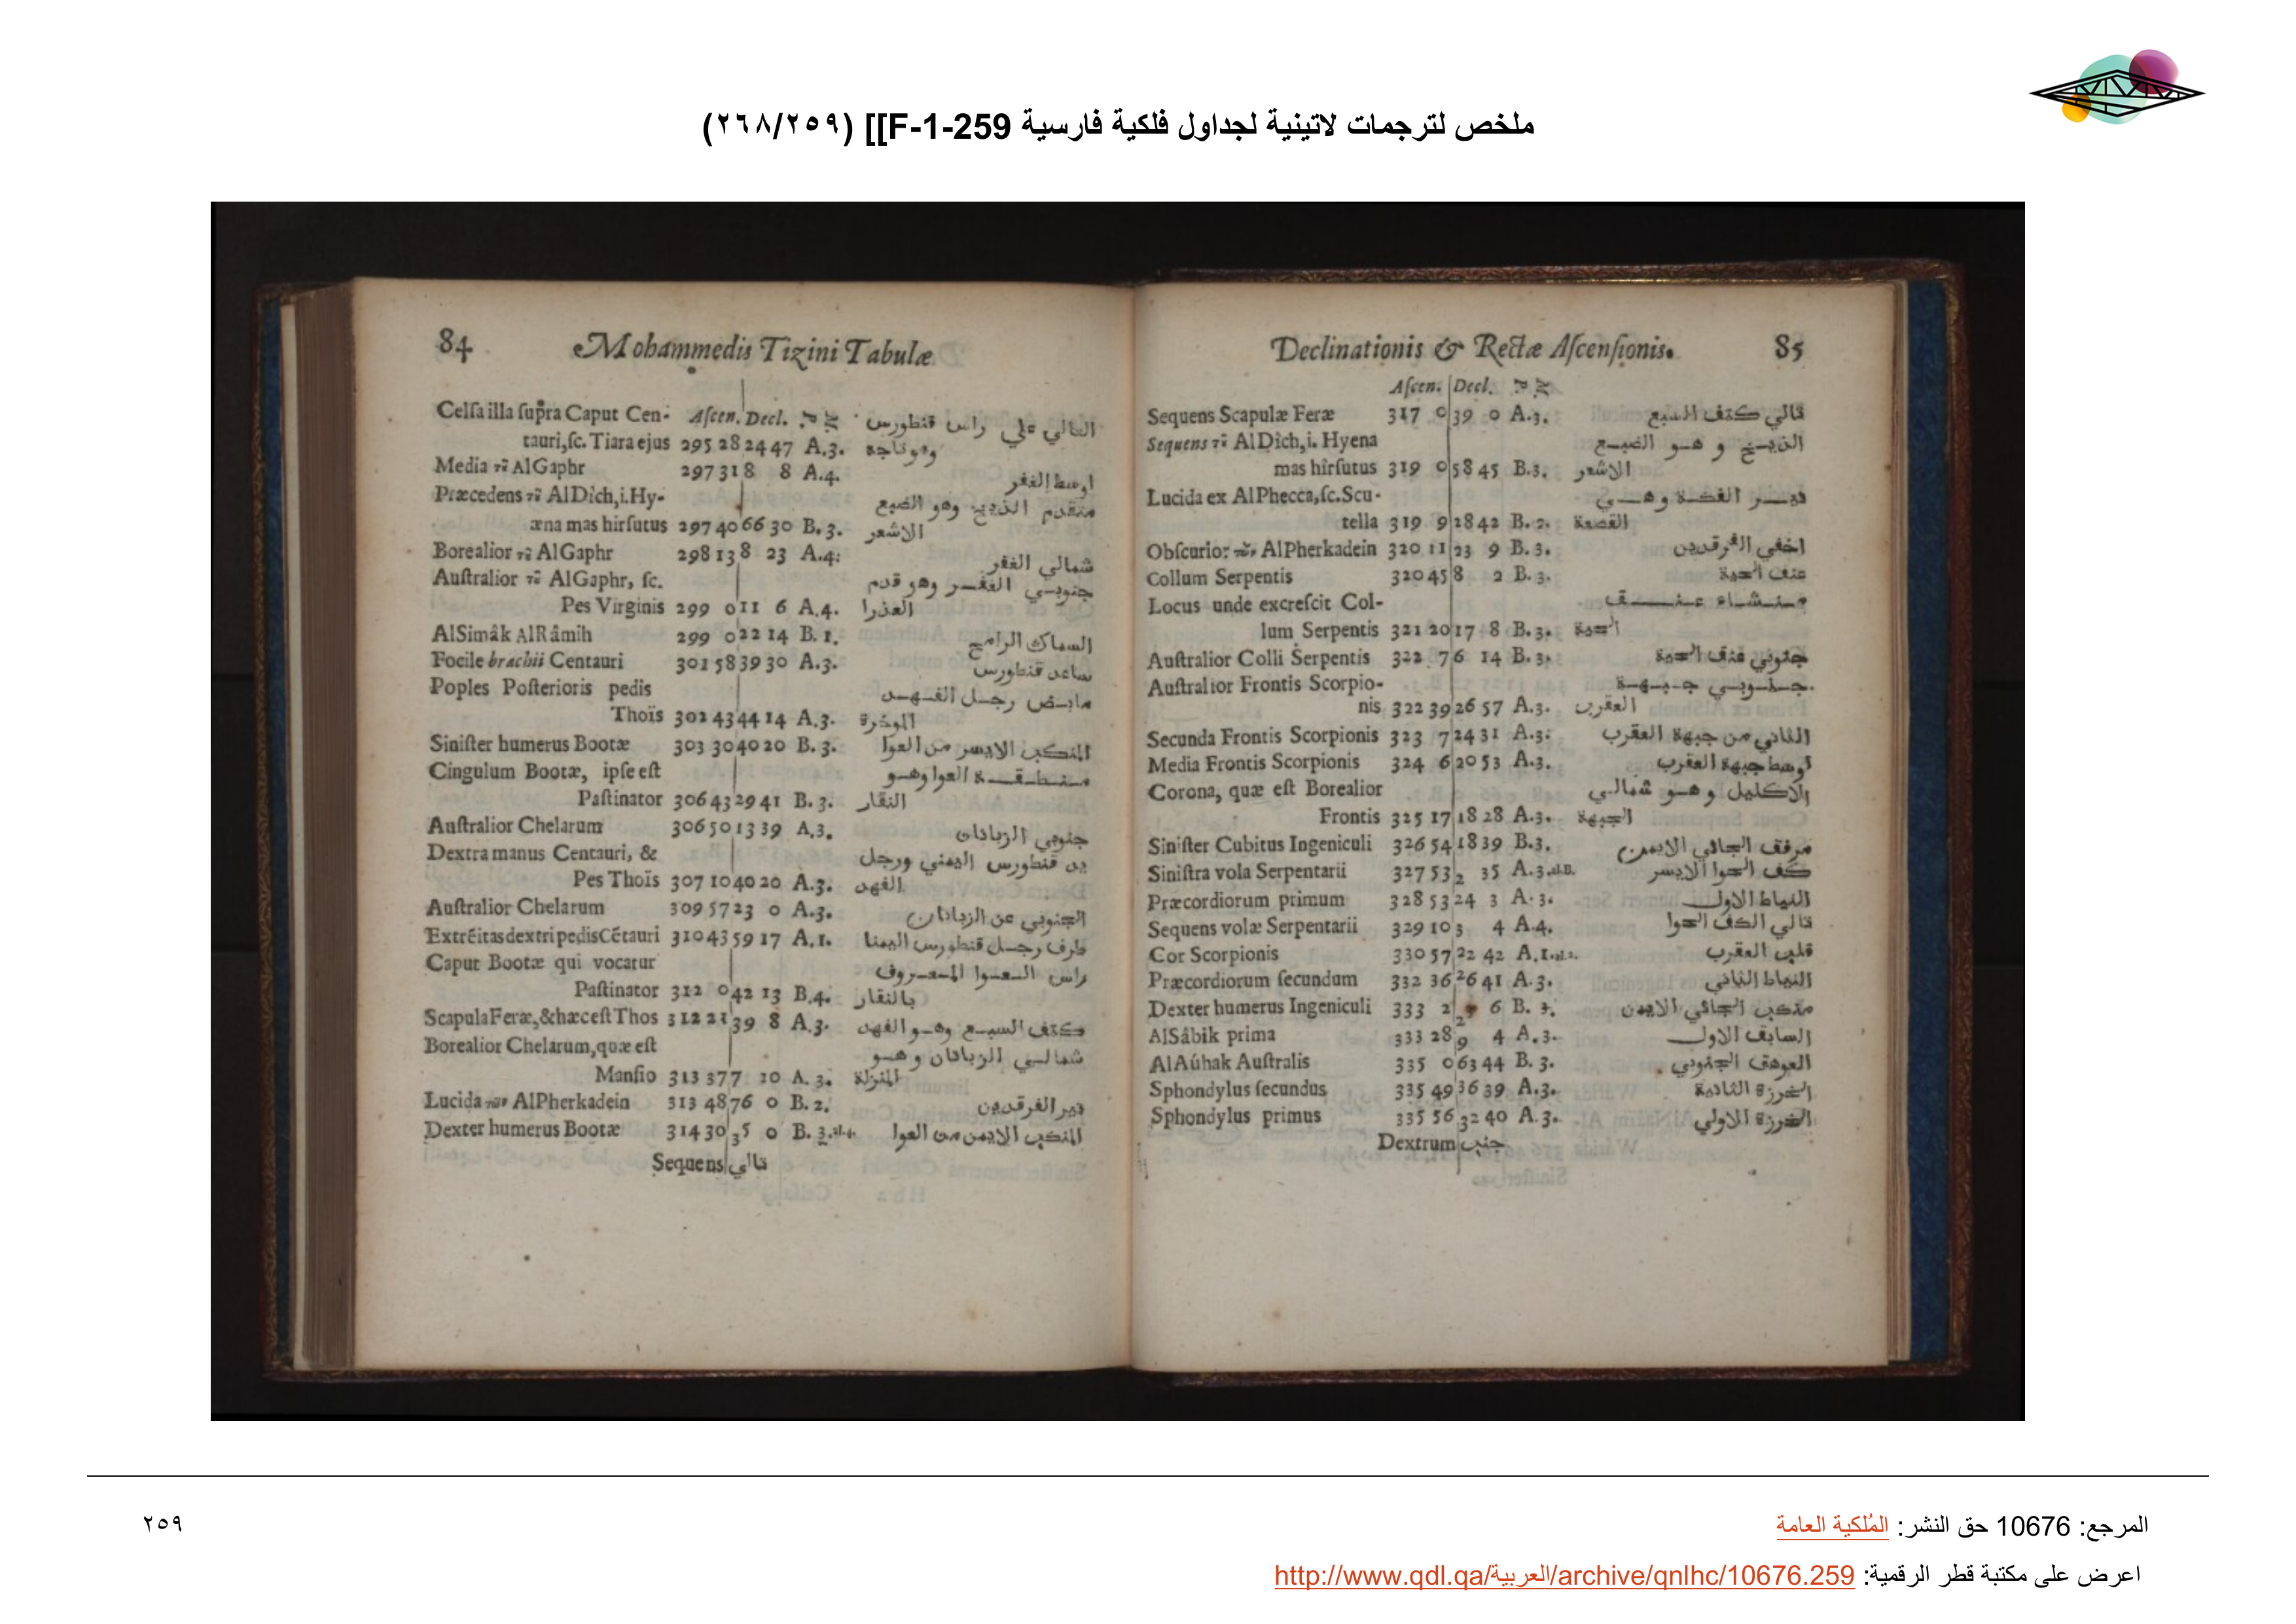 ملخص لترجمات لاتينية لجداول فلكية فارسية [[F-1-259 (٢٥٩/٢٦٨)
84 Mohammedis Tizini Tabulæ
Celsa illa supra Caput Cen- Ascen. Decl. العالي علي راس قنطورس
tauri, sc. Tiara ejus 295 28 24 47 A.3. وهو تاجه
Media τȣ̃ AlGaphr 297 31 8 8 A.4. اوسط الغفر
Præcedens τȣ̃ AlDìch, i. Hy- متقدم الذيخ وهو الضبع
æna mas hirsutus 297 40 66 30 B.3. الاشعر
Borealior τȣ̃ AlGaphr 298 13 8 23 A.4. شمالي الغفر
Australior τȣ̃ AlGaphr, sc. جنوبي الغفر وهو قدم
Pes Virginis 299 0 11 6 A.4. العذرا
AlSimâk AlRâmih 299 0 22 14 B.1. السماك الرامح
Focile brachii Centauri 301 58 39 30 A.3. ساعد قنطورس
Poples Posterioris pedis مابض رجل الفهد
Thoïs 302 43 44 14 A.3. الموخرة
Sinister humerus Bootæ 303 30 40 20 B.3. المنكب الايسر من العوا
Cingulum Bootæ, ipse est منطقة العوا وهو
Pastinator 306 43 29 41 B.3. النقار
Australior Chelarum 306 50 13 39 A.3. جنوبي الزبانان
Dextra manus Centauri, & يد قنطورس اليمني ورجل
Pes Thoïs 307 10 40 20 A.3. الفهد
Australior Chelarum 309 57 23 0 A.3. الجنوبي عن الزبانان
Extrẽitas dextri pedis Cẽtauri 310 43 59 17 A.1. طرف رجل قنطورس اليمنا
Caput Bootæ qui vocatur راس العوا المعروف
Pastinator 312 0 42 13 B.4. بالنقار
Scapula Feræ, & hæc est Thos 312 21 39 8 A.3. كتف السبع وهو الفهد
Borealior Chelarum, quæ est شمالي الزبانان وهو
Mansio 313 37 7 10 A.3. المنزلة
Lucida τῶν AlPherkadein 313 48 76 0 B.2. نير الفرقدين
Dexter humerus Bootæ 314 30 35 0 B.3.al.4. المنكب الايمن من العوا
Sequens تالي
Declinationis & Rectæ Ascensionis. 85
Ascen. Decl.
Sequens Scapulæ Feræ 317 0 39 0 A.3. تالي كتف السبع
Sequens τȣ̃ AlDìch, i. Hyena الذيخ وهو الضبع
mas hirsutus 319 0 58 45 B.3. الاشعر
Lucida ex AlPhecca, sc. Scu- نير الفكة وهي
tella 319 9 28 42 B.2. القصعة
Obscurior τῶν AlPherkadein 320 11 23 9 B.3. اخفي الفرقدين
Collum Serpentis 320 45 8 2 B.3. عنق الحية
Locus unde excrescit Col- منشاء عنق
lum Serpentis 321 20 17 8 B.3. الحية
Australior Colli Serpentis 322 7 6 14 B.3. جنوبي عنق الحية
Australior Frontis Scorpio- جنوبي جبهة
nis 322 39 26 57 A.3. العقرب
Secunda Frontis Scorpionis 323 7 24 31 A.3. الثاني من جبهة العقرب
Media Frontis Scorpionis 324 6 20 53 A.3. اوسط جبهة العقرب
Corona, quæ est Borealior الاكليل وهو شمالي
Frontis 325 17 18 28 A.3. الجبهة
Sinister Cubitus Ingeniculi 326 54 18 39 B.3. مرفق الجاثي الايمن
Sinistra vola Serpentarii 327 53 2 35 A.3.al.B. كف الحوا الايسر
Præcordiorum primum 328 53 24 3 A.3. النياط الاول
Sequens volæ Serpentarii 329 10 3 4 A.4. تالي الكف الحوا
Cor Scorpionis 330 57 22 42 A.1.al.2. قلب العقرب
Præcordiorum secundum 332 36 26 41 A.3. النياط الثاني
Dexter humerus Ingeniculi 333 2 6 B.3. منكب الجاثي الايمن
AlSâbik prima 333 28 9 4 A.3. السابق الاول
AlAúhak Australis 335 0 63 44 B.3. العوهق الجنوبي
Sphondylus secundus 335 49 36 39 A.3. الخرزة الثانية
Sphondylus primus 335 56 32 40 A.3. الخرزة الاولي
Dextrum جنب
المرجع: 10676 حق النشر: المُلكية العامة
٢٥٩
اعرض على مكتبة قطر الرقمية: http://www.qdl.qa/العربية/archive/qnlhc/10676.259